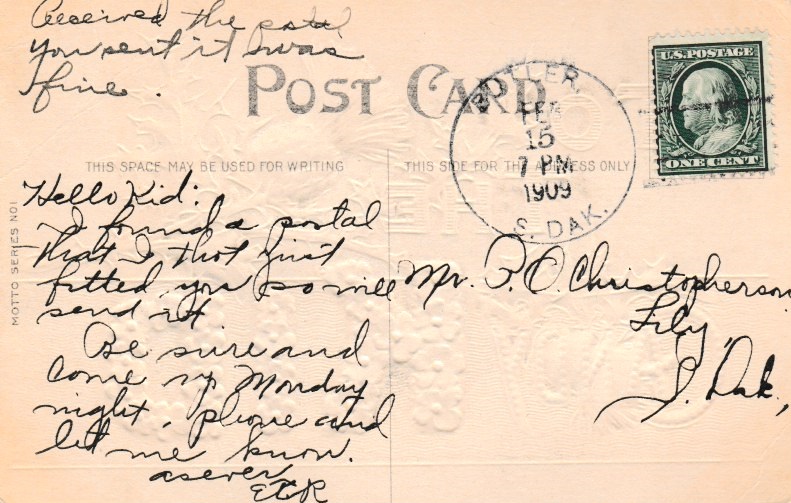 Received the postal
you sent it was
fine.
POST CARD
THIS SPACE MAY BE USED FOR WRITING
THIS SIDE FOR THE ADDRESS ONLY
FEB
15
7 PM
1909
S. DAK.
U.S. POSTAGE
ONE CENT
MOTTO SERIES NO1
Hello Kid:
I found a postal
that I thot just
fitted you so will
send it
Be sure and
come up Monday
night, phone and
let me know.
as ever
Mr. P. O. Christopherson
Lily,
S. Dak,